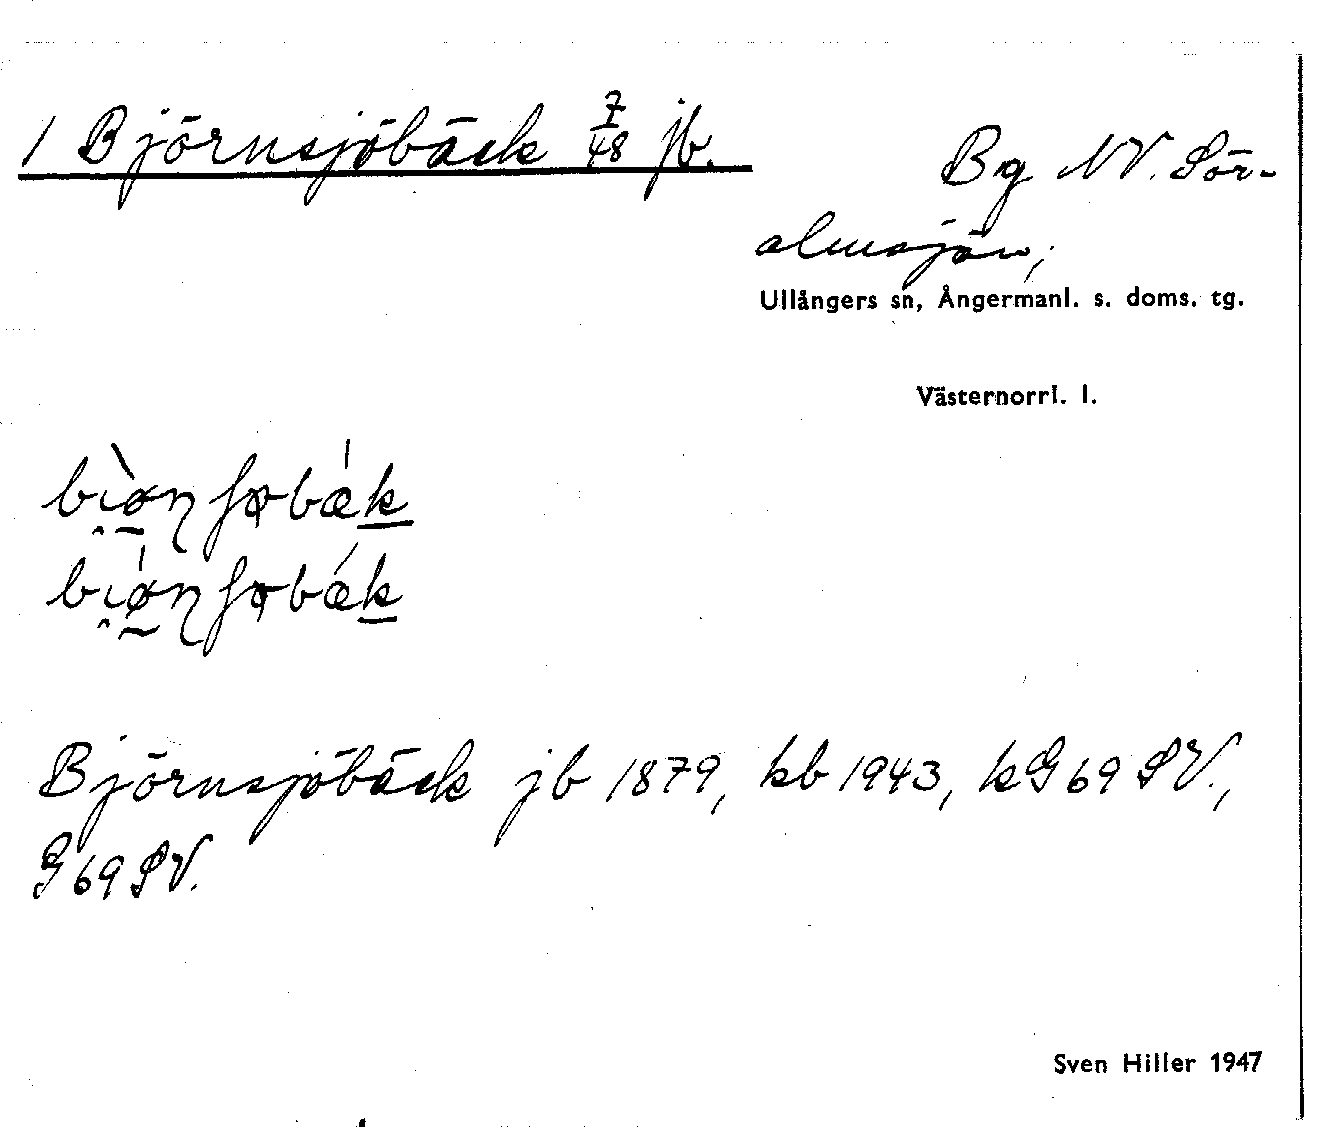 1 Björnsjöbäck 7/48 jb.
Bg NV. Sör-
almsjön,
Ullångers sn, Ångermanl. s. doms. tg.
Västernorrl. l.
Björnsjöbäck jb 1879, kb 1943, kG 69 SV.,
G 69 SV.
Sven Hiller 1947